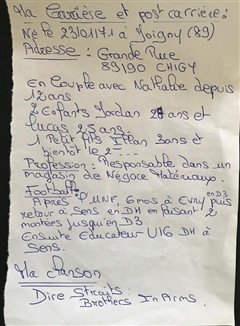 Ma Carrière et post carrière :
Né le 23/01/71 à Joigny (89)
Adresse : Grande Rue
89190 CHIGY
En Couple avec Nathalie depuis
12 ans
2 Enfants Jordan 28 ans et
Lucas 25 ans.
1 Petit fils Ethan 3 ans et
bientôt le 2 ---
Profession : Responsable dans un
magasin de Négoce Matériaux.
Football :
Après l'INF, 6 mois à Evry en D3 puis
retour à Sens en DH en faisant 2
montées jusqu'en D3
Ensuite Educateur U16 DH à
Sens.
Ma chanson
Dire Straits :
Brothers In Arms.